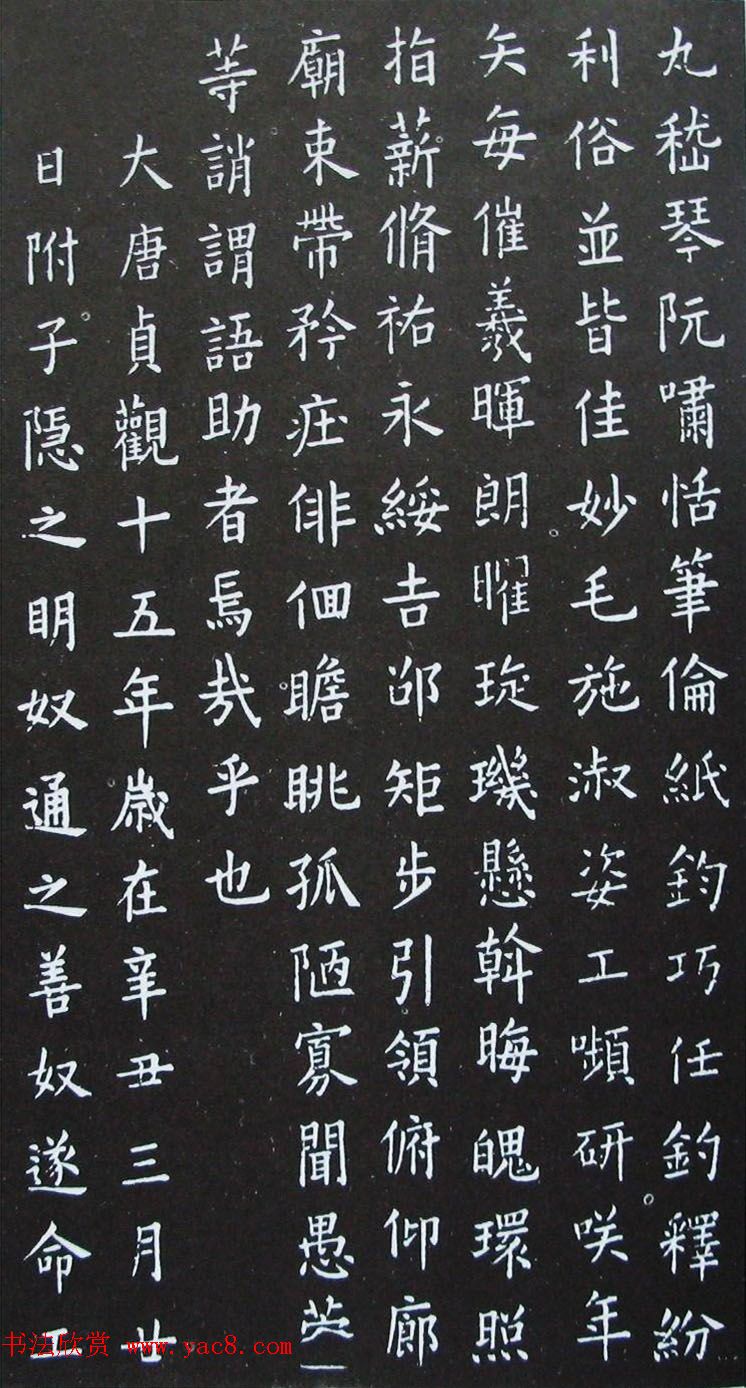 丸嵇琴阮嘯恬筆倫紙鈞巧任釣釋紛
利俗並皆佳妙毛施淑姿工嚬研咲年
矢每催羲暉朗曜琁璣懸斡晦魄環照
指薪脩祐永綏吉邵矩步引領俯仰廊
廟束帶矜莊俳佪瞻眺孤陋寡聞愚蒙
等誚謂語助者焉哉乎也
大唐貞觀十五年歲在辛丑三月廿
日附子隱之明奴通之善奴遂命
书法欣赏 www.yac8.com